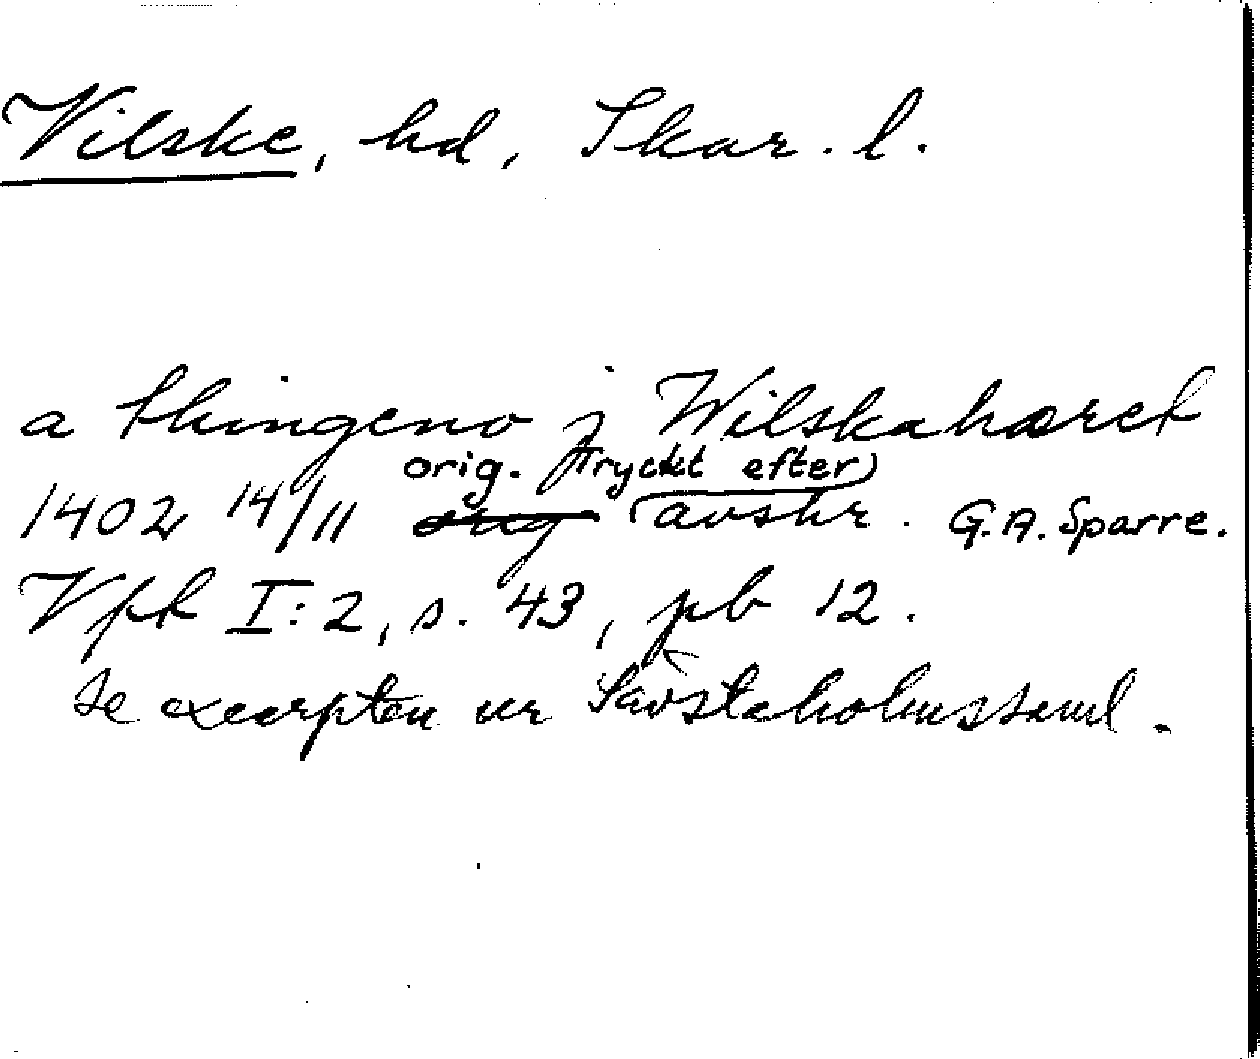 Vilske, hd, Skar. l.
a thingeno j Wilskahæret
orig. (tryckt efter)
1402 14/11 orig avskr. G.A. Sparre.
Vfk I:2, s. 43, pb 12.
se excerpten ur Sävstaholmssaml.